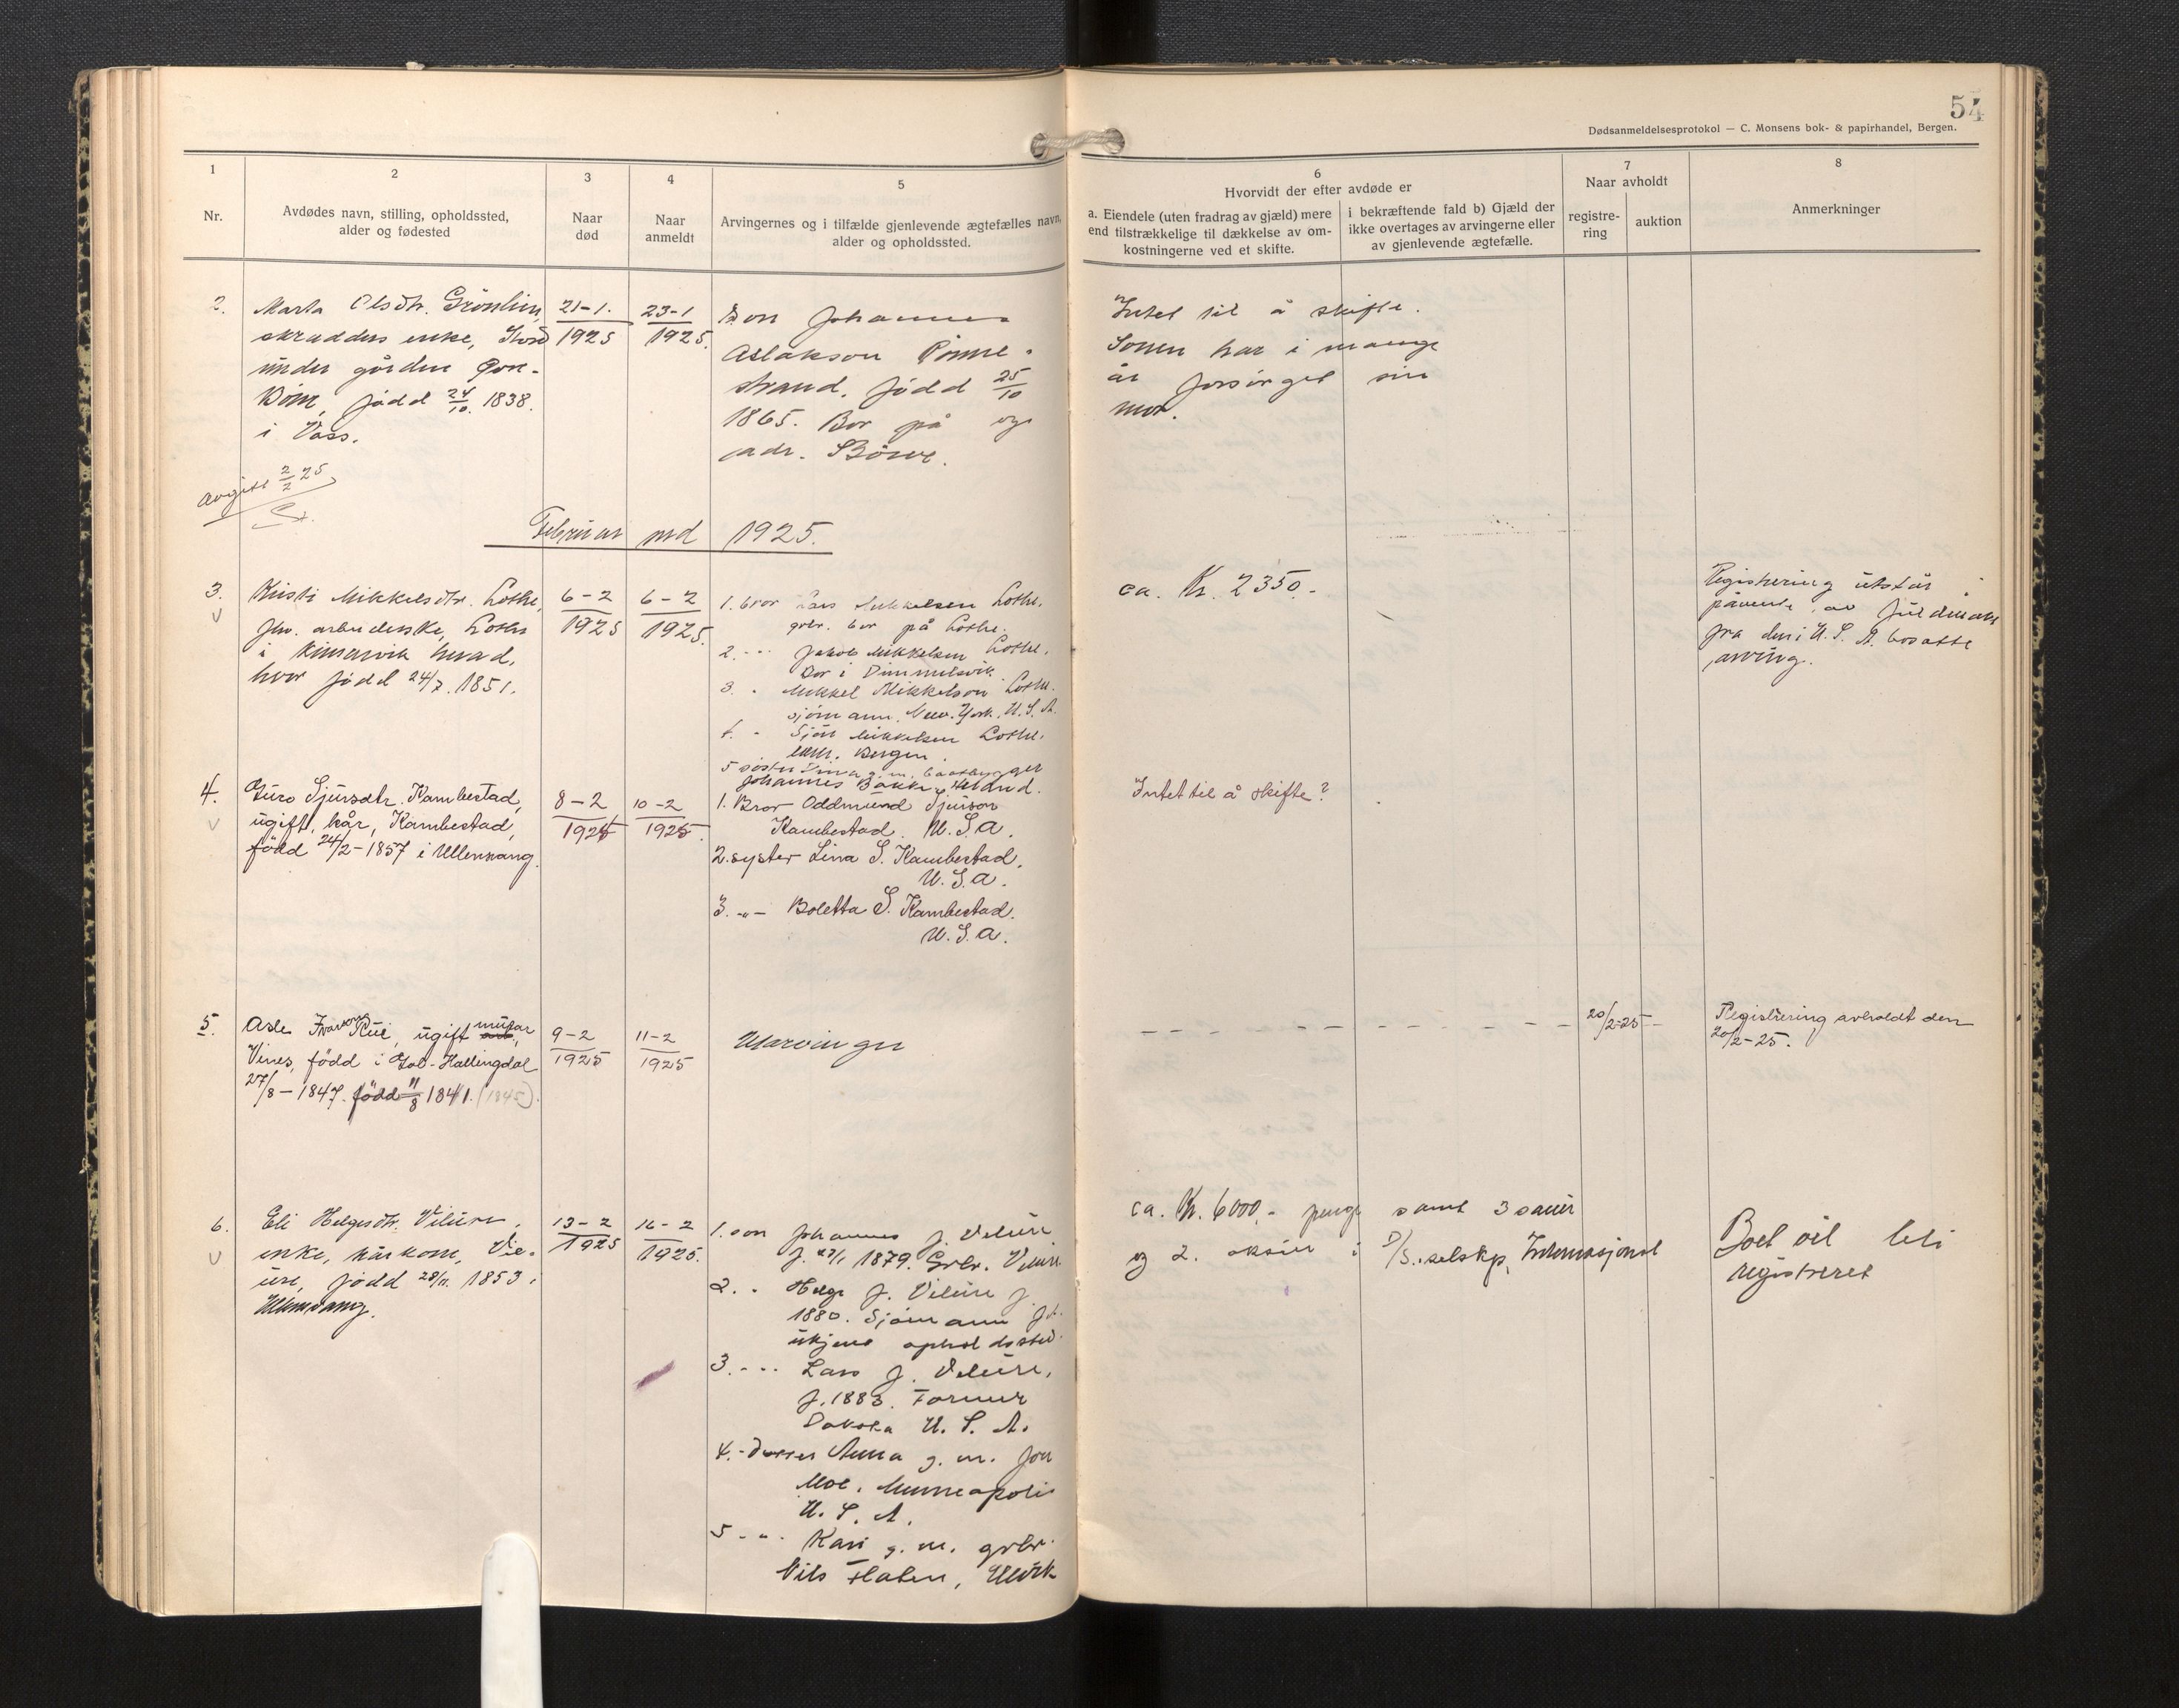 54
Dødsanmeldelsesprotokol — C. Monsens bok- & papirhandel, Bergen.
1
Nr.
2
Avdødes navn, stilling, opholdssted,
alder og fødested
3
Naar
død
4
Naar
anmeldt
5
Arvingernes og i tilfælde gjenlevende ægtefælles navn,
alder og opholdssted.
6
Hvorvidt der efter avdøde er
a. Eiendele (uten fradrag av gjæld) mere
end tilstrækkelige til dækkelse av om-
kostningerne ved et skifte.
i bekræftende fald b) Gjæld der
ikke overtages av arvingerne eller
av gjenlevende ægtefælle.
7
Naar avholdt
registre-
ring
auktion
8
Anmerkninger
2.
Marta Olsdtr. Grönlien,
skrædders enke,
under gården
født 24/10. 1838.
i Voss.
Avgitt 2/2 25
21-1.
1925
23-1
1925.
Son Johannes
Aslakson
strand. født 25/10
1865. Bor på og
adr. Börve.
Intet til å skifte.
Sonen har i mange
år forsörget sin
mor.
Februar md 1925.
3.
Kristi Mikkelsdtr. Lothe,
fhv. arbeiderske, Lothe
i Kinservik herad,
hvor född 24/7. 1851.
6-2
1925
6-2
1925.
1. bror Lars Mikkelsen Lothe,
grbr. bor på Lothe.
2. -"- Jakob Mikkelsen Lothe,
Bor i Dimmelsvik.
3. " Mikkel Mikkelson Lothe.
sjömann. New-York, U.S.A.
4. " Sjur Mikkelsen Lothe,
Bergen.
5 söster g.m. baatbygger
Johannes Bakke,
ca. Kr. 2350.-
Registrering utstår
påvente av
fra den i U.S.A. bosatte
arving.
4.
Guro Sjursdtr. Kambestad,
ugift, kår, Kambestad,
född 24/2-1857 i Ullensvang.
8-2
1925
10-2
1925.
1. Bror Oddmund Sjurson
Kambestad. U.S.A.
2. syster Lina S. Kambestad,
U.S.A.
3. -"- Boletta S. Kambestad.
U.S.A.
Intet til å skifte?
5.
Asle Ivarson Rui, ugift murar,
Vines, född i Gol-Hallingdal
27/8-1847. född 11/8 1841. (1845).
9-2
1925
11-2
1925
Uarvinger
20/2-25
Registrering avholdt den
20/2-25.
6.
Eli Helgesdtr. Vilure,
enke, kårkone, Vil-
ure, född 28/11. 1853.
Ullensvang.
13-2
1925
16-2
1925.
1. son Johannes J. Vilure
f. 1879. Grbr. Vilure.
2. " Helge J. Vilure f.
1880. Sjömann
ukjent opholdssted.
3. -"- Lars J. Vilure,
f. 1883. Farmer
Dakota U.S.A.
4. - Datter Anna g. m. Jon
Moe, Minneapolis
U.S.A.
5 - " - Kari g. m. grbr.
Nils Flaten, Ulvik
ca. Kr. 6000,- penge samt 3 sauer
og 2. aksier i D/S. selskp. Internasjonal
Boet vil bli
registreret